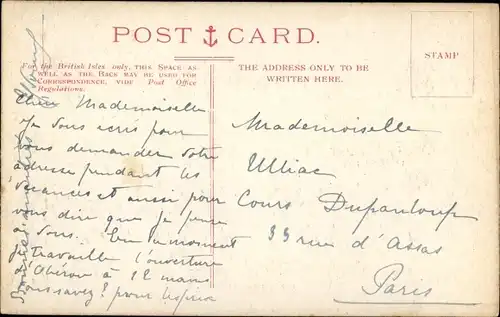 POST CARD.
For the British Isles only, THIS SPACE AS
WELL AS THE BACK MAY BE USED FOR
CORRESPONDENCE, VIDE Post Office
Regulations.
THE ADDRESS ONLY TO BE
WRITTEN HERE.
STAMP
Chère Mademoiselle
Je vous écris pour
vous demander votre
adresse pendant les
vacances et aussi pour
vous dire que je pense
à vous. En ce moment
je travaille l'ouverture
d'Obéron à 12 mains
Vous savez? pour
Mademoiselle
Ulliac
Cours Dupanloup
33 rue d'Assas
Paris